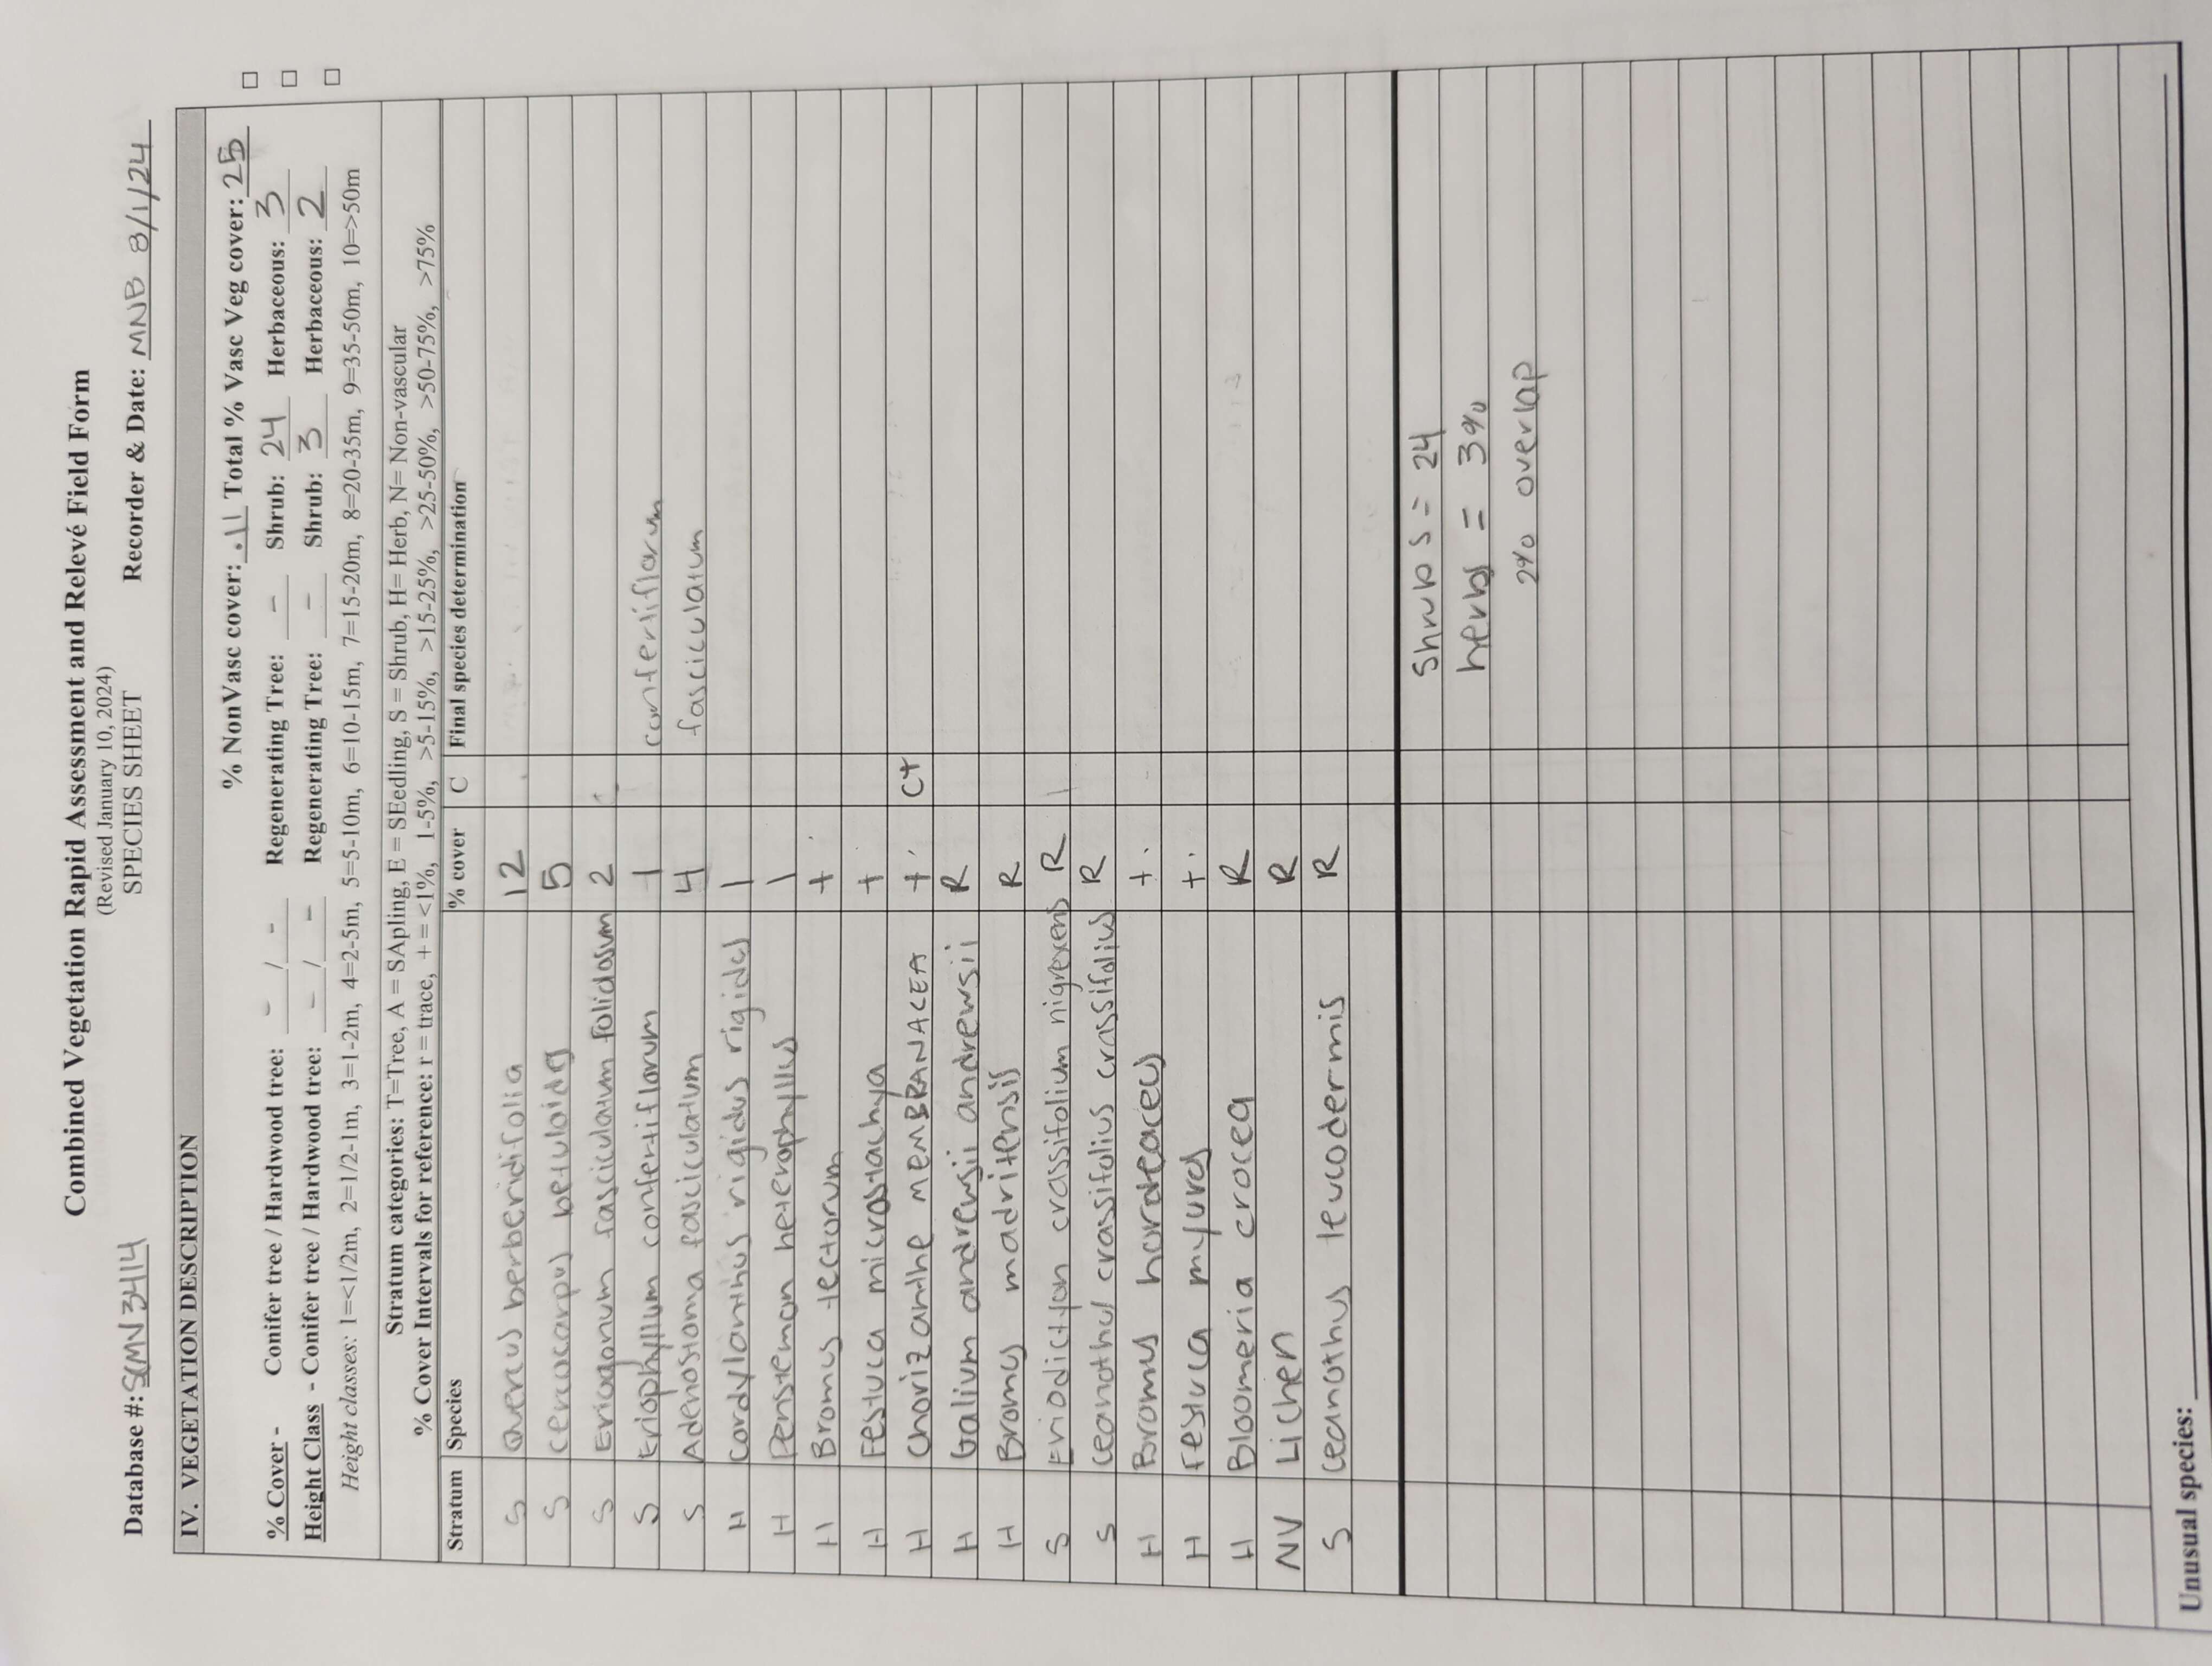 Combined Vegetation Rapid Assessment and Relevé Field Form
(Revised January 10, 2024)
SPECIES SHEET
Database #: SCMN3414 Recorder & Date: MNB 8/1/24
IV. VEGETATION DESCRIPTION
% NonVasc cover: .11 Total % Vasc Veg cover: 25
% Cover - Conifer tree / Hardwood tree: - / - Regenerating Tree: - Shrub: 24 Herbaceous: 3
Height Class - Conifer tree / Hardwood tree: - / - Regenerating Tree: - Shrub: 3 Herbaceous: 2
Height classes: 1=<1/2m, 2=1/2-1m, 3=1-2m, 4=2-5m, 5=5-10m, 6=10-15m, 7=15-20m, 8=20-35m, 9=35-50m, 10=>50m
Stratum categories: T=Tree, A = SApling, E = SEedling, S = Shrub, H= Herb, N= Non-vascular
% Cover Intervals for reference: r = trace, + = <1%, 1-5%, >5-15%, >15-25%, >25-50%, >50-75%, >75%
Stratum Species % cover C Final species determination
S Quercus berberidifolia 12
S Cercocarpus betuloides 5
S Eriogonum fasciculatum foliolosum 2
S Eriophyllum confertiflorum 1 confertiflorum
S Adenostoma fasciculatum 4 fasciculatum
H Cordylanthus rigidus rigidus 1
H Penstemon heterophyllus 1
H Bromus tectorum +
H Festuca microstachya +
H Chorizanthe MEMBRANACEA + C+
H Galium andrewsii andrewsii R
H Bromus madritensis R
S Eriodictyon crassifolium nigrescens R
S Ceanothus crassifolius crassifolius R
H Bromus hordeaceus +
H Festuca myuros +
H Bloomeria crocea R
NV Lichen R
S Ceanothus leucodermis R
Shrubs = 24
herbs = 3%
2% overlap
Unusual species: